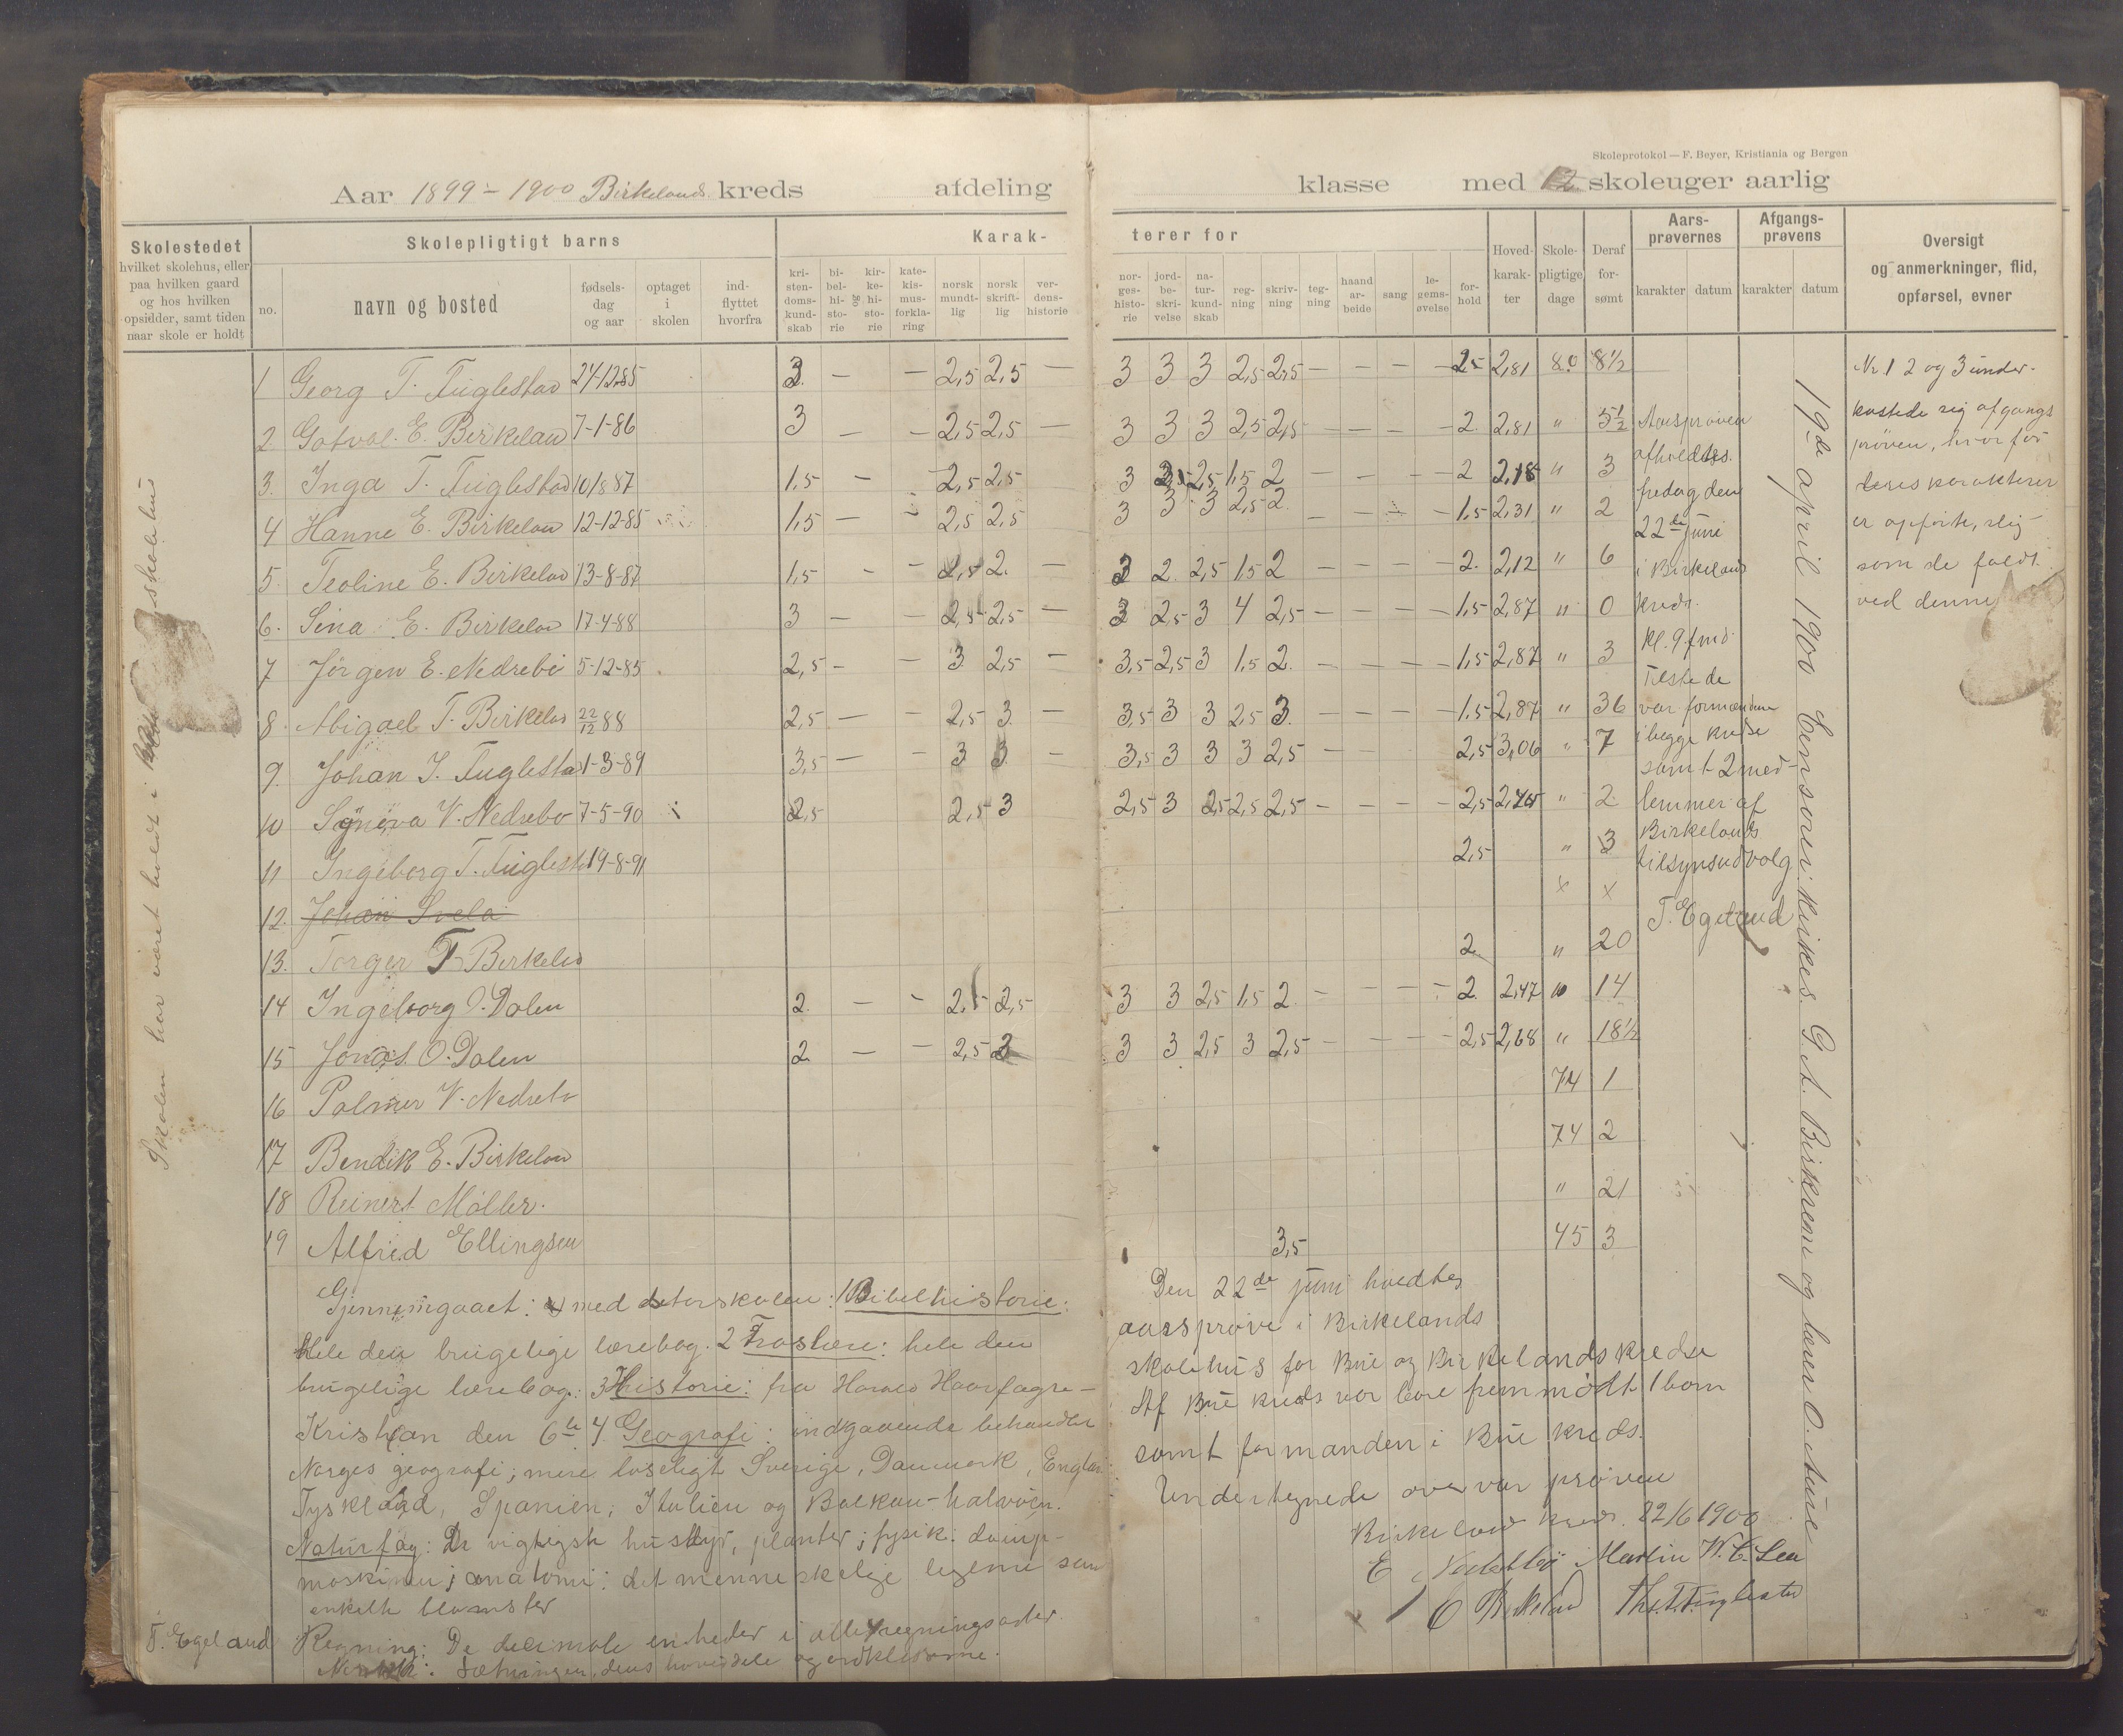 Skoleprotokol — F. Beyer, Kristiania og Bergen
Aar 1899 - 1900 Birkelands kreds afdeling klasse med 12 skoleuger aarlig
Skolestedet
hvilket skolehus, eller
paa hvilken gaard
og hos hvilken
opsidder, samt tiden
naar skole er holdt
Skolepligtigt barns
no.
navn og bosted
fødsels-
dag
og aar
optaget
i
skolen
ind-
flyttet
hvorfra
Karak-
terer for
kri-
sten-
doms-
kund-
skab
bi-
bel-
hi-
sto-
rie
og
kir-
ke-
hi-
sto-
rie
kate-
kis-
mus-
forkla-
ring
norsk
mundt-
lig
norsk
skrift-
lig
ver-
dens-
historie
nor-
ges-
histo-
rie
jord-
be-
skri-
velse
na-
tur-
kund-
skab
reg-
ning
skriv-
ning
teg-
ning
haand
ar-
beide
sang
le-
gems-
øvelse
for-
hold
Hoved-
karak-
ter
Skole-
pligtige
dage
Deraf
for-
sømt
Aars-
prøvernes
karakter datum
Afgangs-
prøvens
karakter datum
Oversigt
og anmerkninger, flid,
opførsel, evner
Skolen har været holdt i skolehus
1 Georg T. Fuglestad 24-12-85 3 — — 2,5 2,5 — 3 3 3 2,5 2,5 — — — — 2,5 2,81 80 8½
2 Gotval. E. Birkeland 7-1-86 3 — — 2,5 2,5 — 3 3 3 2,5 2,5 — — — — 2 2,81 " 5½
3. Inga T. Fuglestad 10/8 87 1,5 — — 2,5 2,5 — 3 2,5 1,5 2 — — — — 2 2,18 " 3
4 Hanne E. Birkeland 12-12-85 1,5 — — 2,5 2,5 3 3 3 2,5 2 — — — — 1,5 2,31 " 2
5. Teoline E. Birkeland 13-8-87 1,5 — — 2,5 2. — 3 2 2,5 1,5 2 — — — — 2. 2,12 " 6
6. Sina E. Birkeland 17-4-88 3 — — 2,5 2,5 — 3 2,5 3 4 2,5 — — — — 1,5 2,87 " 0
7 Jørgen E. Nedrebø 5-12-85 2,5 — — 3 2,5 — 3,5 2,5 3 1,5 2. — — — — 1,5 2,87 " 3
8. Abigael T. Birkeland 22/12 88 2,5 — — 2,5 3. — 3,5 3 3 2,5 3. — — — — 1,5 2,87 " 36
9. Johan T. Fuglestad 1-3-89 3,5 — — 3 3 — 3,5 3 3 3 2,5 — — 2,5 3,06 " 7
10 Synøva V. Nedrebø 7-5-90 2,5 2,5 3 2,5 3 2,5 2,5 2,5 — — — — 2,5 " 2
11 Ingeborg T. Fuglestad 19-8-91 2,5 " 3
12. Johan Svela x x
13. Torger T Birkeland 2 " 20
14 Ingeborg O. Dalen 2. — — 2,5 2,5 3 3 2,5 1,5 2 — — — — 2. 2,47 " 14
15 Jonas O. Dalen 2 — — 2,5 3 3 3 2,5 3 2,5 — — — — 2,5 2,68 " 18½
16 Palmer V. Nedrebø 74 1
17 Bendik E. Birkeland 74 2
18 Reinert Møller. " 21
19 Alfred Ellingsen 3,5 45 3
Aarsprøven
afholdtes
fredag den
22de juni
i Birkelands
kreds.
Kl. 9 fmd.
Tilstede
var formændene
i begge kredse
samt 2 med-
lemmer af
Birkelands
tilsynsudvalg
T. Egeland
19de april 1900 Censorer: kirkes. G. A. Birkrem og lærer O. Aure
Nr 1 2 og 3 under-
kastede sig afgangs
prøven, hvorfor
deres karakterer
er opførte, slig
som de faldt
ved denne
Gjennemgaaet: med storskolen: 1 Bibelhistorie:
Hele den brugelige lærebog. 2 Troslære: hele den
brugelige lærebog: 3 Historie: fra Harald Haarfagre —
Kristian den 6te. 4. Geografi: indgaaende behandlet
Norges geografi; mere løseligt Sverige, Danmark, England
Tyskland, Spanien, Italien og Balkan-halvøen.
Naturfag: De vigtigste husdyr, planter; fysik: damp-
maskinen; anatomi: det menneskelige legeme samt
enkelte blomster
Regning: De decimale enheder i alle regningsarter
: Sætningen, dens hoveddele og ordklasserne.
T. Egeland
Den 22de juni holdtes
aarsprøve i Birkelands
skolehus for Bue og Birkelands kredse
Af Bue kreds var bare fremmødt 1 barn
samt formanden i Bue kreds.
Undertegnede overvar prøven
Birkeland kreds. 22/6 1900
E Nedrebø Martin W. E. Lea
E Birkeland Ths. T. Fuglestad